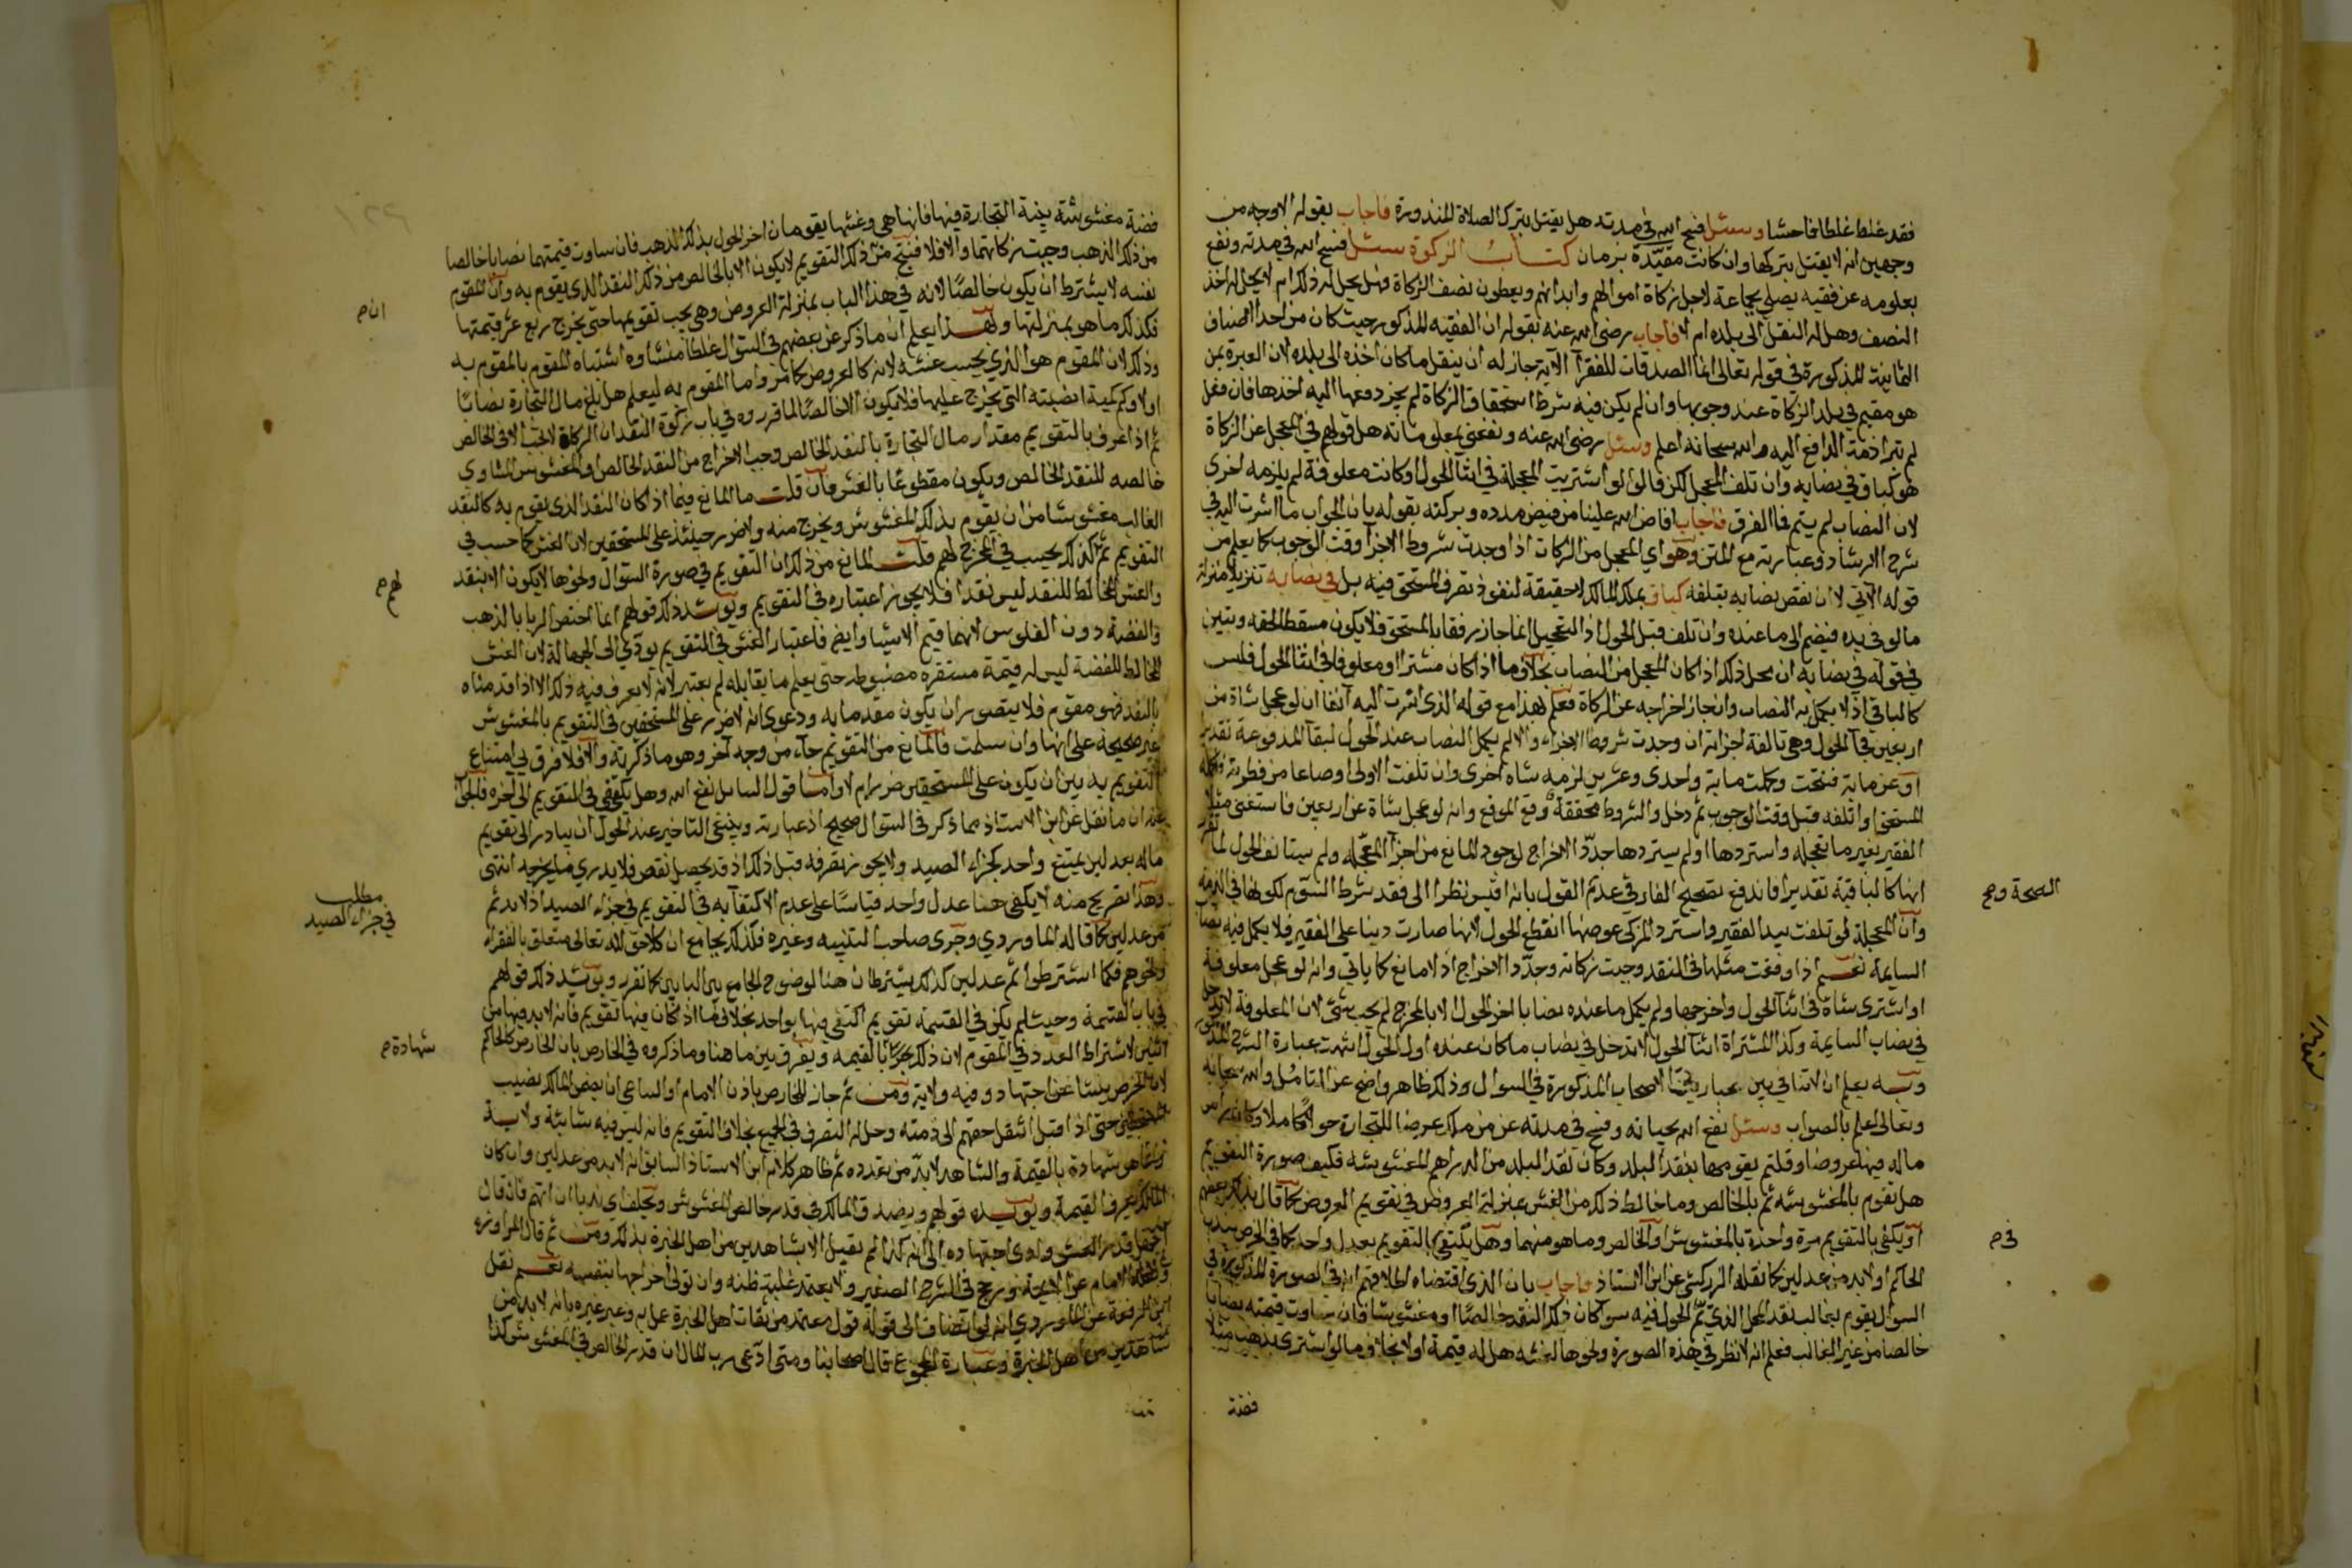 فقد غلط غلطا فاحشا وسئل فسح الله في مدته هل يقتل بترك الصلاة المنذورة فاجاب بقوله الاوجه من
وجهين انه لا يقتل بتركها وان كانت مقيدة بزمان كتاب الزكوة سئل فسح الله في مدته ونفع
بعلومه عن فقيه يصلي بجماعة لاجل زكاة اموالهم وابدانهم ويعطون نصف الزكاة فهل يحل له ذلك ام لا يحل له اخذ
النصف وهل له النقل الى بلده ام لا فاجاب رضى الله عنه بقوله ان الفقيه المذكور حيث كان من احد اصناف
الثمانية المذكورة في قوله تعالى انما الصدقات للفقرا الآية جاز له ان ينقل ما كان اخذه الى بلده لان العبرة بمن
هو مقيم في بلد الزكاة عند وجوبها وان لم يكن فيه شرط استحقاق الزكاة لم يجز دفعها اليه اخذها فان فعل
لم تبرا ذمة الدافع اليه والله سبحانه اعلم وسئل رضى الله عنه ونفعنى بمعلوماته هل قولهم في المعجل عن الزكاة
هو كباق في نصابه وان تلف المعجل لكن قالوا لو اشتريت المعجلة في اثنا الحول او كانت معلوفة لم يلزمه اخرى
لان النصاب لم يتم فما الفرق فاجاب افاض الله علينا من فيض مدده وبركته بقوله بان الجواب ما اشرت اليه في
شرح الارشاد وعبارته مع المتن وهو اي المعجل من الزكات اذا وجدت شروط الاجزا وقت الوجوب كما يعلم من
قوله الآتي لا ان نقص نصابه بتلفه كباق بملك المالك لا حقيقة لنفوذ تصرف المستحق فيه بل في نصابه تنزيلا منزلة
مالو في يده فيضم الى ما عنده وان تلف قبل الحول اذ التعجيل انما جاز رفقا بالمستحق فلا يكون مسقطا لحقه وتبين
في قوله في نصابه ان محل ذلك اذا كان المعجل من النصاب بخلاف ما اذا كان مشترا او معلوفا في اثنا الحول فليس
كالباقي اذ لا يكمل به النصاب وان جاز اخراجه عن الزكاة فعلم بهذا مع قوله الذى اشرت اليه آنفا ان لو عجل شاة من
اربعين فجآ الحول وهي تالفة اجزاته ان وجدت شروط الاجزاء والا لم يكمل النصاب عند الحول لبقآ المدفوعة تقديرا
او عن ماية فنتجت وكملت ماية واحدى وعشرين لزمه شاه اخرى وان تلفت الاولى او صاعا من فطرته
المستحق او اتلفه قبل وقت الوجوب ثم دخل والشروط محققة وقع الموقع وانه لو عجل شاة عن اربعين فاستغنى مثلا
الفقير بغير ما تعجله واستردها او لم يستردها جدد الاخراج لوجود المانع من اجزا المعجله ولم يستانف الحول لما تقرر
انها كالباقية تقديرا فاندفع تصحيح الفارقي عدم القول بانه اقيس نظرا الى فقد شرط السوم لكونها في الذمه
وان المعجلة لو تلفت بيد الفقير واسترد المزكى عوضها انقطع الحول لانها صارت دينا على الفقير فلا يكمل فيه نصاب
السايمة نعم اذا وقعت مثلها في النقد وجبت زكاته وجدد الاخراج اذ لا مانع كما ياتي وانه لو عجل معلوفة
او اشترى شاة في اثنآ الحول واخرجها ولم يكمل ما عنده نصابا اخر الحول الا بالمخرج لم يجب شئ لان المعلوفة لا تدخل
في نصاب السايمة وكذا المشتراة اثنآ الحول لا تدخل في نصاب ما كان عنده اول الحول انتهت عبارة الشرح المذكور
وبه يعلم ان لا تنافي بين عبارتي الاصحاب المذكورة في السوال وذلك ظاهر واضح عند التامل والله سبحانه
وتعالى اعلم بالصواب وسئل نفع الله بحياته وفسح في مدته عن من ملك عرضا للتجارة حولا كاملا وكان راس
ماله فيها عروضا وقلتم يقومها بنقد البلد وكان نقد البلد من الدراهم المغشوشه فكيف صورة التقويم
هل تقوم بالمغشوشه ثم بالخالص وما خالط ذلك من الغش بمنزلة العروض في تقويم العروض كما قال بذلك بعضهم
او يكفى بالتقويم مرة واحدة بالمغشوش او الخالص وما هو منهما وهل يكتفى بالتقويم بعدل واحد كما في الخرص
الحاكم او لا بد من عدلين كما نقله الزركشي عن ابن الاستاذ فاجاب بان الذى اقتضاه اطلاقهم ان في الصورة المذكورة في
السوال يقوم بغالب نقد المحل الذي تم الحول فيه سوا كان ذلك النقد خالصا او مغشوشا فان ساوت قيمته نصابا
خالصا من غير الغالب فعلم انه لا نظر في هذه الصورة ونحوها لغشه هل له قيمة او لا بخلاف مالو اشترى بذهب مثلا
فضة
الصحة وصح
في صح
فضة مغشوشة بنية التجارة فيها فانها هي وغشها يقومان اخر الحول بذلك الذهب فان ساوت قيمتهما نصابا خالصا
من ذلك الذهب وجبت زكاتهما والا فلا فنتج من ذلك ان التقويم لا يكون الا بالخالص من ذلك النقد الذى يقوم به وان المقوم
نفسه لا يشترط ان يكون خالصا لانه في هذا الباب بمنزلة العروض وهي يجب تقويمها حتى يخرج ربع عشر قيمتها
فكذلك ما هو بمنزلتها وبهذا يعلم ان ما ذكر عن بعضهم في السوال غلط منشاوه اشتباه المقوم بالمقوم به
وذلك لان المقوم هو الذي يحسب غشه لانه كالعروض كما مر واما المقوم به ليعلم هل بلغ مال التجارة نصابا
اولا وكم كمية انصبته التى يخرج عليها فلا يكون الا خالصا لما قرروه في باب زكوة النقد ان الزكاة لا تجب الا في الخالص
ثم اذا عرف بالتقويم مقدار مال التجارة بالنقد الخالص وجب الاخراج من النقد الخالص او المغشوش المساوي
خالصه للنقد الخالص ويكون متطوعا بالغش فان قلت ما المانع فيما اذا كان النقد الذى يقوم به كالنقد
الغالب مغشوشا من ان يقوم بذلك المغشوش ويخرج منه ولا ضرر حينئذ على المستحقين لان الغش كما حسب في
التقويم ثم كذلك يحسب في المخرج لهم قلت المانع من ذلك ان التقويم في صورة السوال ونحوها لا يكون الا بنقد
والغش المخالط للنقد ليس نقدا فلا يجوز اعتباره في التقويم ويؤيد ذلك قولهم انما اختص الربا بالذهب
والفضة دون الفلوس لانهما قيم الاشيا وايضا فاعتبار الغش في التقويم يودي الى الجهالة لان الغش
المخالط للفضة ليس له قيمة مستقره مضبوطه حتى يعلم ما يقابله لم يعتبر لانه لا يعرف فيه ذلك الا اذا قدمناه
بالنقد فهو مقوم فلا يتصور ان يكون مقدما به ودعوى انه لا ضرر على المستحقين في التقويم بالمغشوش
غير صحيحة على انها وان سلمت فالمانع من التقويم جآء من وجه آخر وهو ما ذكرته والا فلا فرق في امتناع
التقويم به بين ان يكون على المستحقين ضرر ام لا واما قول السايل نفع الله وهل يكفي في التقويم الى آخره فالجواب
عنه ان ما نقل عن ابن الاستاذ مما ذكر في السوال صحيح اذ عبارته وينبغي للتاجر عند الحول ان يبادر الى تقويم
ماله بعدلين يمتنع واحد كجزاء الصيد ولا يجوز تصرفه قبل ذلك اذ قد يحصل نقص فلا يدري ما يخرجه انتهى
وهذا تصريح منه لا يكفى هنا عدل واحد قياسا على عدم الاكتفآ به في التقويم في جزاء الصيد اذ لا بد ثم
من عدلين كما قاله الماوردي وجرى صاحب التنبيه وغيره فكذلك بجامع ان كلا حق لله تعالى متعلق بالفقراء
ونحوهم فكما اشترطوا ثم عدلين كذلك يشترطان هنا لوضوح الجامع بين البابين كما تقرر ويؤيد ذلك قولهم
في باب القسمة وحيث لم يكن في القسمة تقويم اكتفى فيها بواحد بخلاف ما اذا كان فيها تقويم فانه لا بد فيها من
اثنين لاشتراط العدد في المقوم لان ذلك بالقيمه ويفرق بين ما هنا وما ذكروه في الخارص بان الخارص كالحاكم
لان الخرص ينشا عن اجتهاد وفيه ولاية ومن ثم جاز للخارص باذن الامام او الساعي ان يضمن المالك نصيب
المستحقين حتى اذا قبل انتقل حقهم الى ذمته وحل له التصرف في الجميع بخلاف التقويم فانه ليس فيه شائبة ولاية
وانما هو شهادة بالقيمة والشاهد لا بد من تعدده ثم ظاهر كلام ابن الاستاذ السابق انه لا بد من عدلين وان كان
المالك يعرف القيمة ويؤيده قولهم ويصدق المالك في قدر خالص المغشوش وتحلف اي ندبا ان اتهم فان قال
اجهل قدر الغش وادى اجتهاده الى انه كذا لم يقبل الا بشاهدين من اهل الخبرة بذلك ومن ثم قال المراوزه
ونقله الامام عن الايمة ورجح في الشرح الصغير ولا يعتمد غلبة ظنه وان تولى اخراجها بنفسه نعم نقل
ابن الرفعة عن الماوردي انه لو انضاف الى قوله قول معتمد من ثقات اهل الخبرة عمل به وعبر غيره بانه لا بد من
شاهدين من اهل الخبرة وعبارة المجموع قال اصحابنا ومتى ادعى رب المال ان قدر الخالص في المغشوش كذا
ان صح
لهم صح
مطلب
في جزاء الصيد
شهادة صح